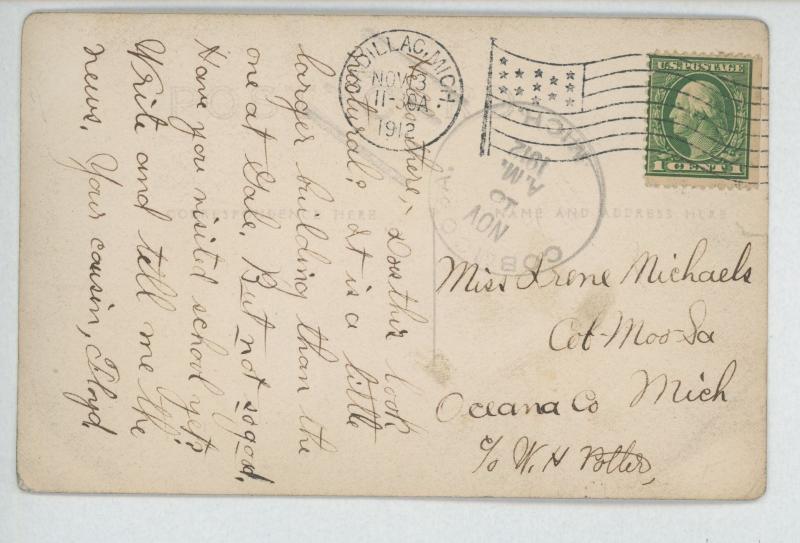 CADILLAC, MICH.
NOV 3
11-30A
1912
U.S. POSTAGE
1 CENT 1
COB
MICH.
NOV
A.M.
1912
POS
CORRESPONDENCE HERE
NAME AND ADDRESS HERE
there, Doesn't this look
natural? It is a little
larger building than the
one at Gale. But not so good.
Have you visited school yet?
Write and tell me the
news. Your cousin, Floyd
Miss Irene Michaels
Cob-Moo-Sa
Mich
Oceana Co
c/o W. H Potter,